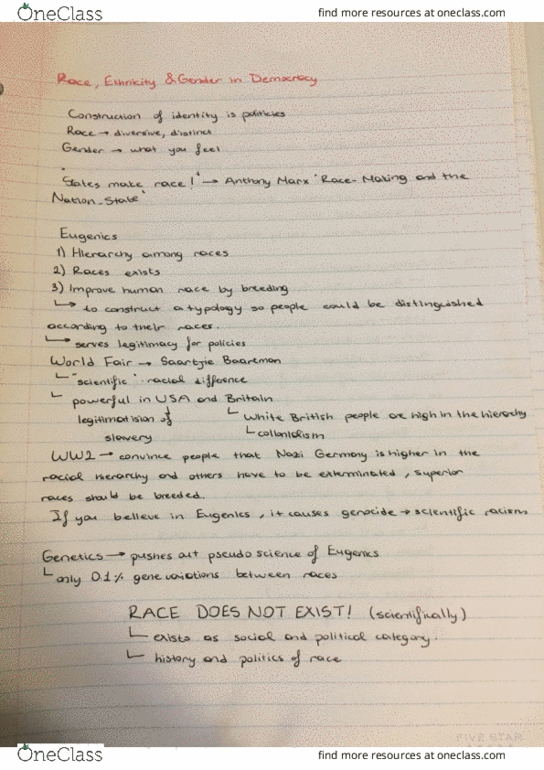 OneClass find more resources at oneclass.com
Race, Ethnicity & Gender in Democracy
Construction of identity is politicies
Race → diversive, distinct
Gender → what you feel
"States make race!" → Anthony Marx "Race-Making and the
Nation-State"
Eugenics
1) Hierarchy among races
2) Races exists
3) Improve human race by breeding
↳ to construct a typology so people could be distinguished
according to their races.
↳ serves legitimacy for policies
World Fair → Saartjie Baartman
"scientific" racial difference
powerful in USA and Britain
legitimation of White British people are high in the hierarchy
slavery colonialism
WW2 → convince people that Nazi Germany is higher in the
racial hierarchy and others have to be exterminated, superior
races should be breeded.
If you believe in Eugenics, it causes genocide → scientific racism
Genetics → pushes out pseudo science of Eugenics
only 0.1% gene variations between races
RACE DOES NOT EXIST! (scientifically)
exists as social and political category.
history and politics of race
FIVE STAR
OneClass find more resources at oneclass.com